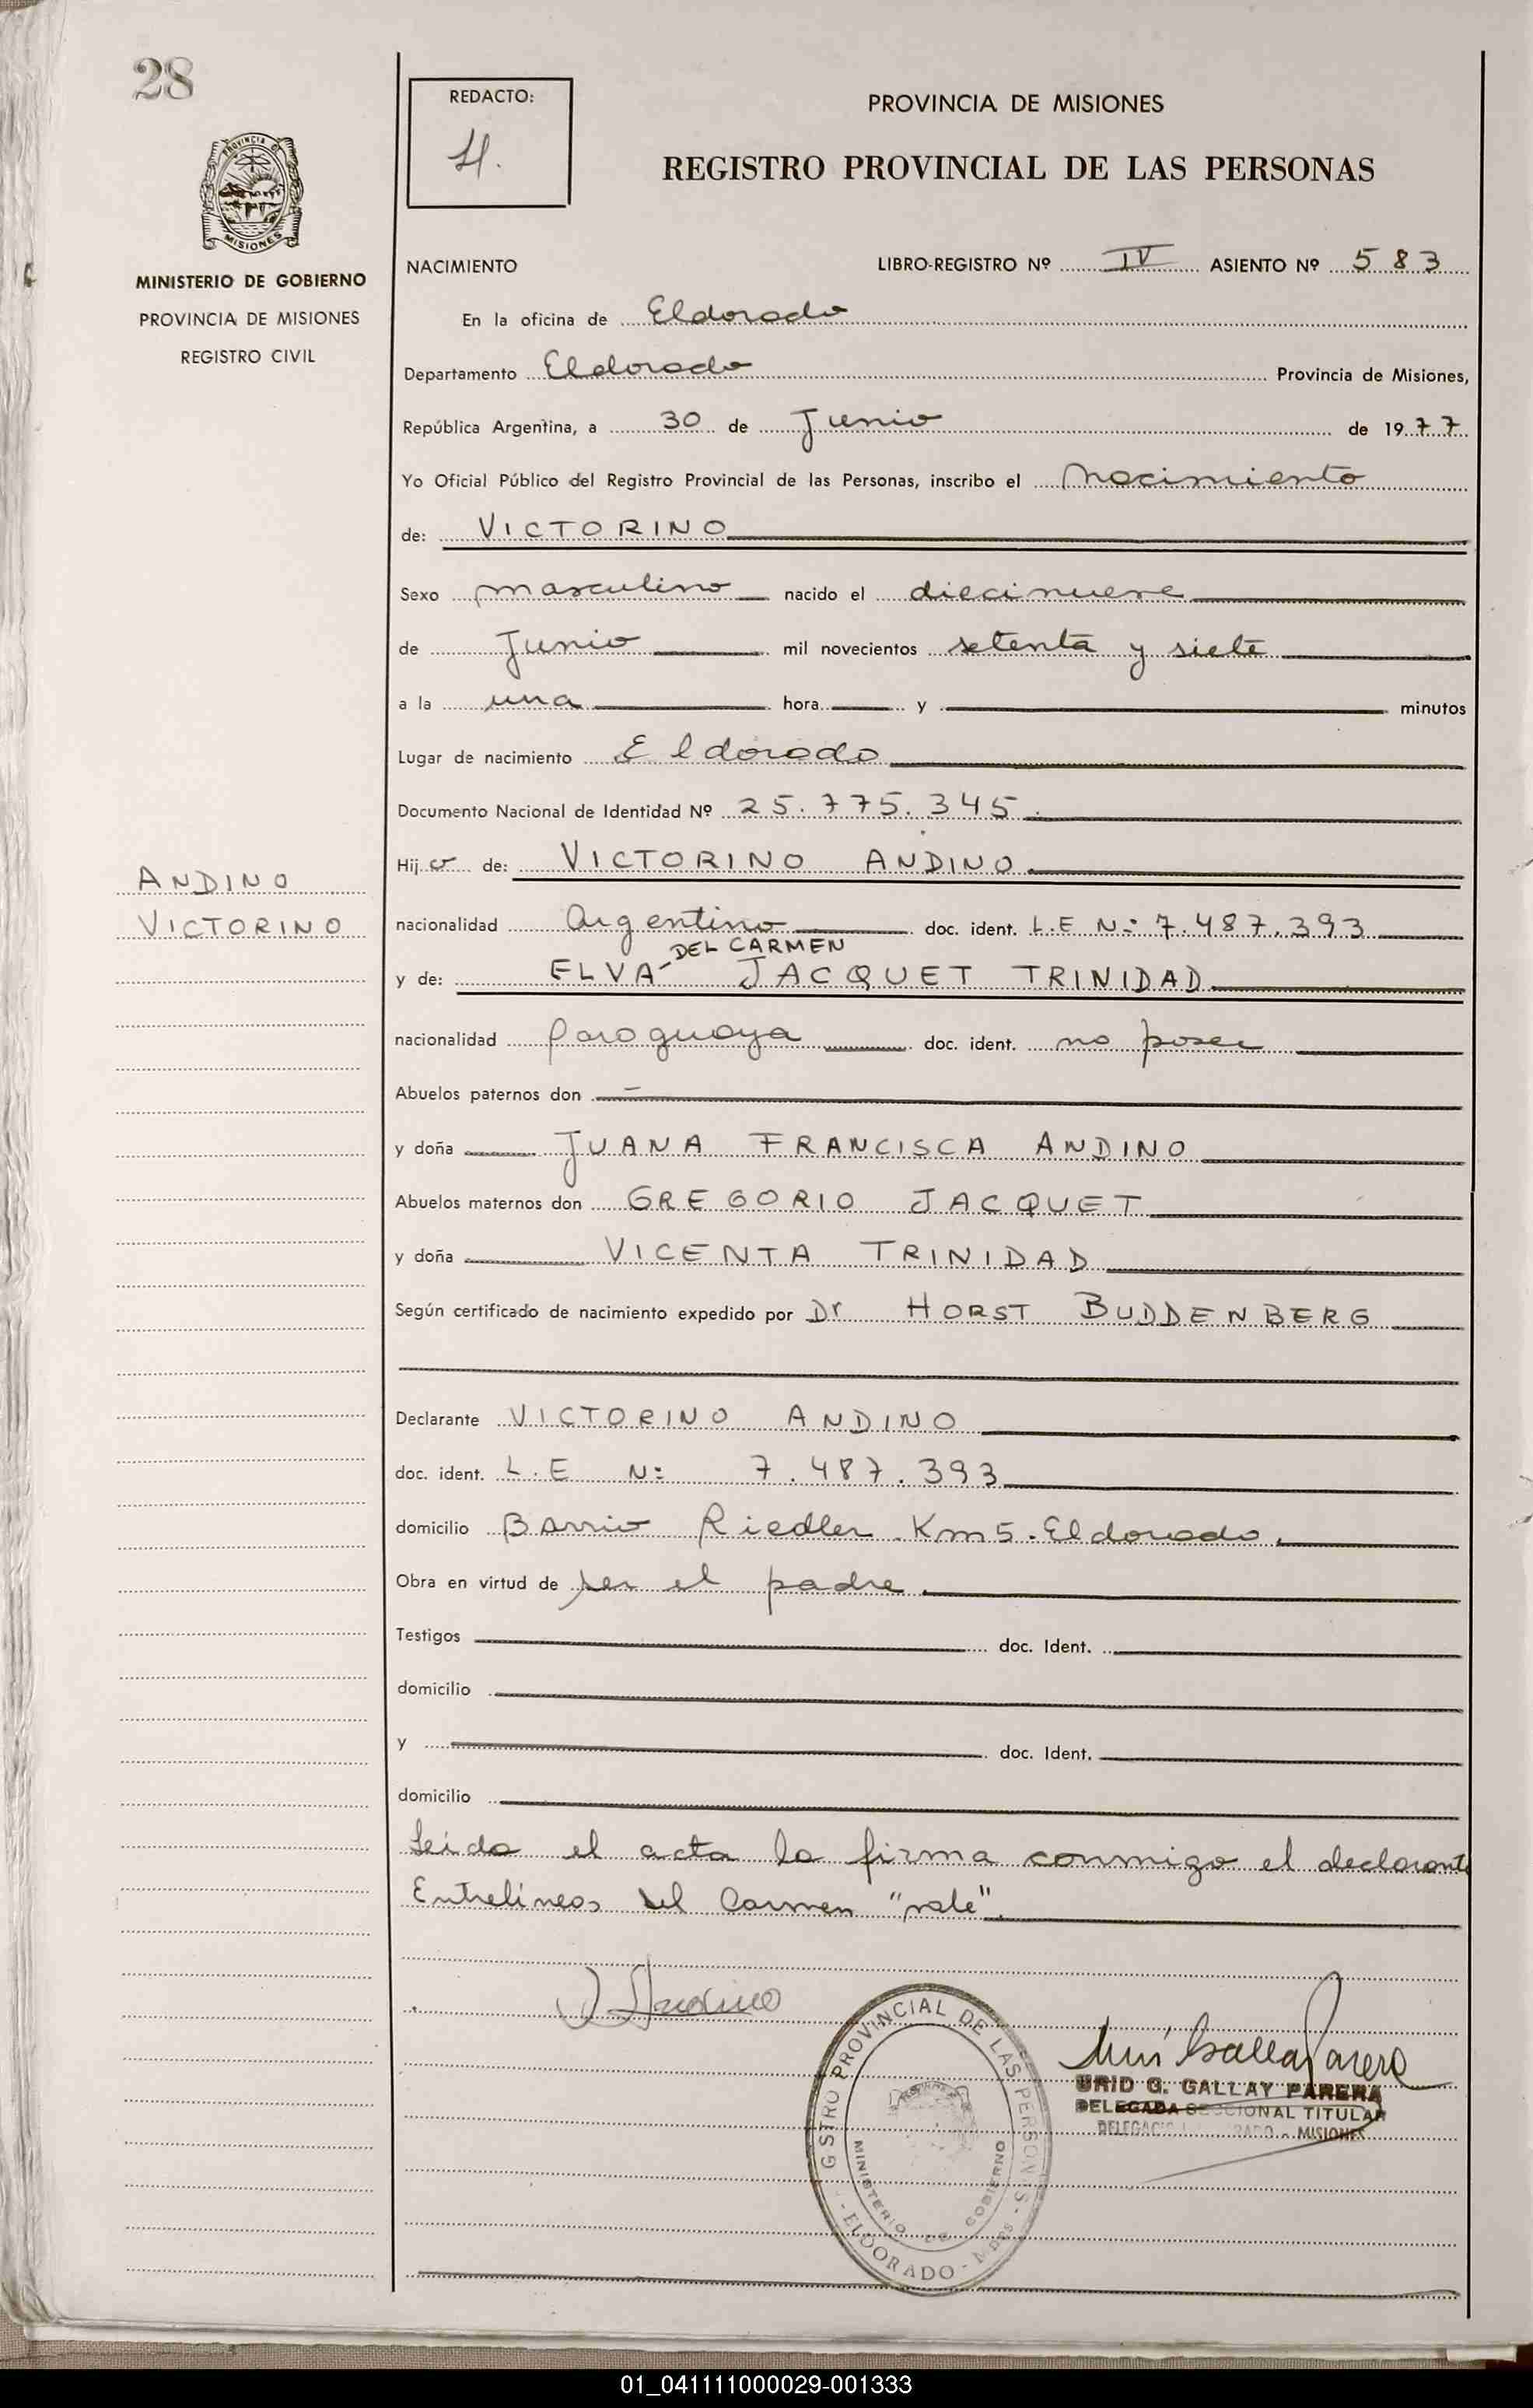 28
REDACTO:
PROVINCIA DE MISIONES
REGISTRO PROVINCIAL DE LAS PERSONAS
PROVINCIA D.
MISIONES
MINISTERIO DE GOBIERNO
PROVINCIA DE MISIONES
REGISTRO CIVIL
NACIMIENTO LIBRO-REGISTRO Nº IV ASIENTO Nº 583
En la oficina de Eldorado
Departamento Eldorado Provincia de Misiones,
República Argentina, a 30 de Junio de 1977
Yo Oficial Público del Registro Provincial de las Personas, inscribo el Nacimiento
de: VICTORINO
Sexo masculino nacido el diecinueve
de Junio mil novecientos setenta y siete
a la una hora y minutos
Lugar de nacimiento Eldorado
Documento Nacional de Identidad Nº 25.775.345.
Hijo de: VICTORINO ANDINO
ANDINO
VICTORINO
nacionalidad Argentino doc. ident. L.E Nº 7.487.393
DEL CARMEN
y de: ELVA JACQUET TRINIDAD
nacionalidad Paraguaya doc. ident. no posee
Abuelos paternos don
y doña JUANA FRANCISCA ANDINO
Abuelos maternos don GREGORIO JACQUET
y doña VICENTA TRINIDAD
Según certificado de nacimiento expedido por Dr HORST BUDDENBERG
Declarante VICTORINO ANDINO
doc. ident. L.E Nº 7.487.393
domicilio Barrio Riedler Km5. Eldorado.
Obra en virtud de ser el padre.
Testigos doc. Ident.
domicilio
y doc. Ident.
domicilio
Leida el acta la firma conmigo el declarante
Entrelineas del Carmen "vale".
V Andino
GISTRO PROVINCIAL DE LAS PERSONAS
MINISTERIO DE GOBIERNO
- ELDORADO - Mnes -
URID G. GALLAY PARERA
DELEGADA SECCIONAL TITULAR
MISIONES
01_041111000029-001333